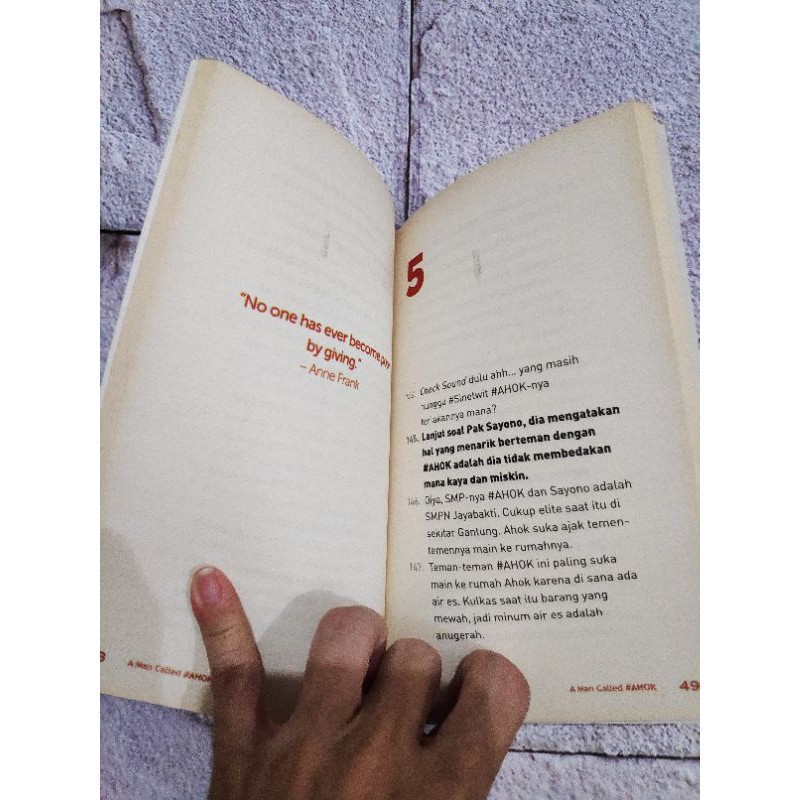 "No one has ever become poor
by giving."
– Anne Frank
8
A Man Called #AHOK
5
Check Sound dulu ahh... yang masih
nunggu #Sinetwit #AHOK-nya
teriakannya mana?
145. Lanjut soal Pak Sayono, dia mengatakan
hal yang menarik berteman dengan
#AHOK adalah dia tidak membedakan
mana kaya dan miskin.
146. Oiya, SMP-nya #AHOK dan Sayono adalah
SMPN Jayabakti. Cukup elite saat itu di
sekitar Gantung. Ahok suka ajak temen-
temennya main ke rumahnya.
147. Teman-teman #AHOK ini paling suka
main ke rumah Ahok karena di sana ada
air es. Kulkas saat itu barang yang
mewah, jadi minum air es adalah
anugerah.
A Man Called #AHOK
49